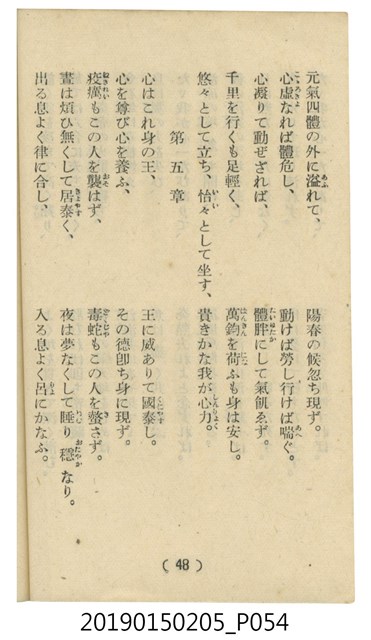 元氣四體の外に溢れて、　陽春の候忽ち現ず。
心虛なれば體危し、　動けば勞し行けば喘ぐ。
心凝りて動ぜざれば、　體胖にして氣飢ゑず。
千里を行くも足輕く、　萬鈞を荷ふも身は安し。
悠々として立ち、怡々として坐す、　貴きかな我が心力。
第五章
心はこれ身の王、　王に威ありて國泰し。
心を尊び心を養ふ、　その德卽ち身に現ず。
疫癘もこの人を襲はず、　毒蛇もこの人を螫さず。
晝は煩ひ無くして居泰く、　夜は夢なくして睡り穩なり。
出る息よく律に合し、　入る息よく呂にかなふ。
(48)
20190150205_P054